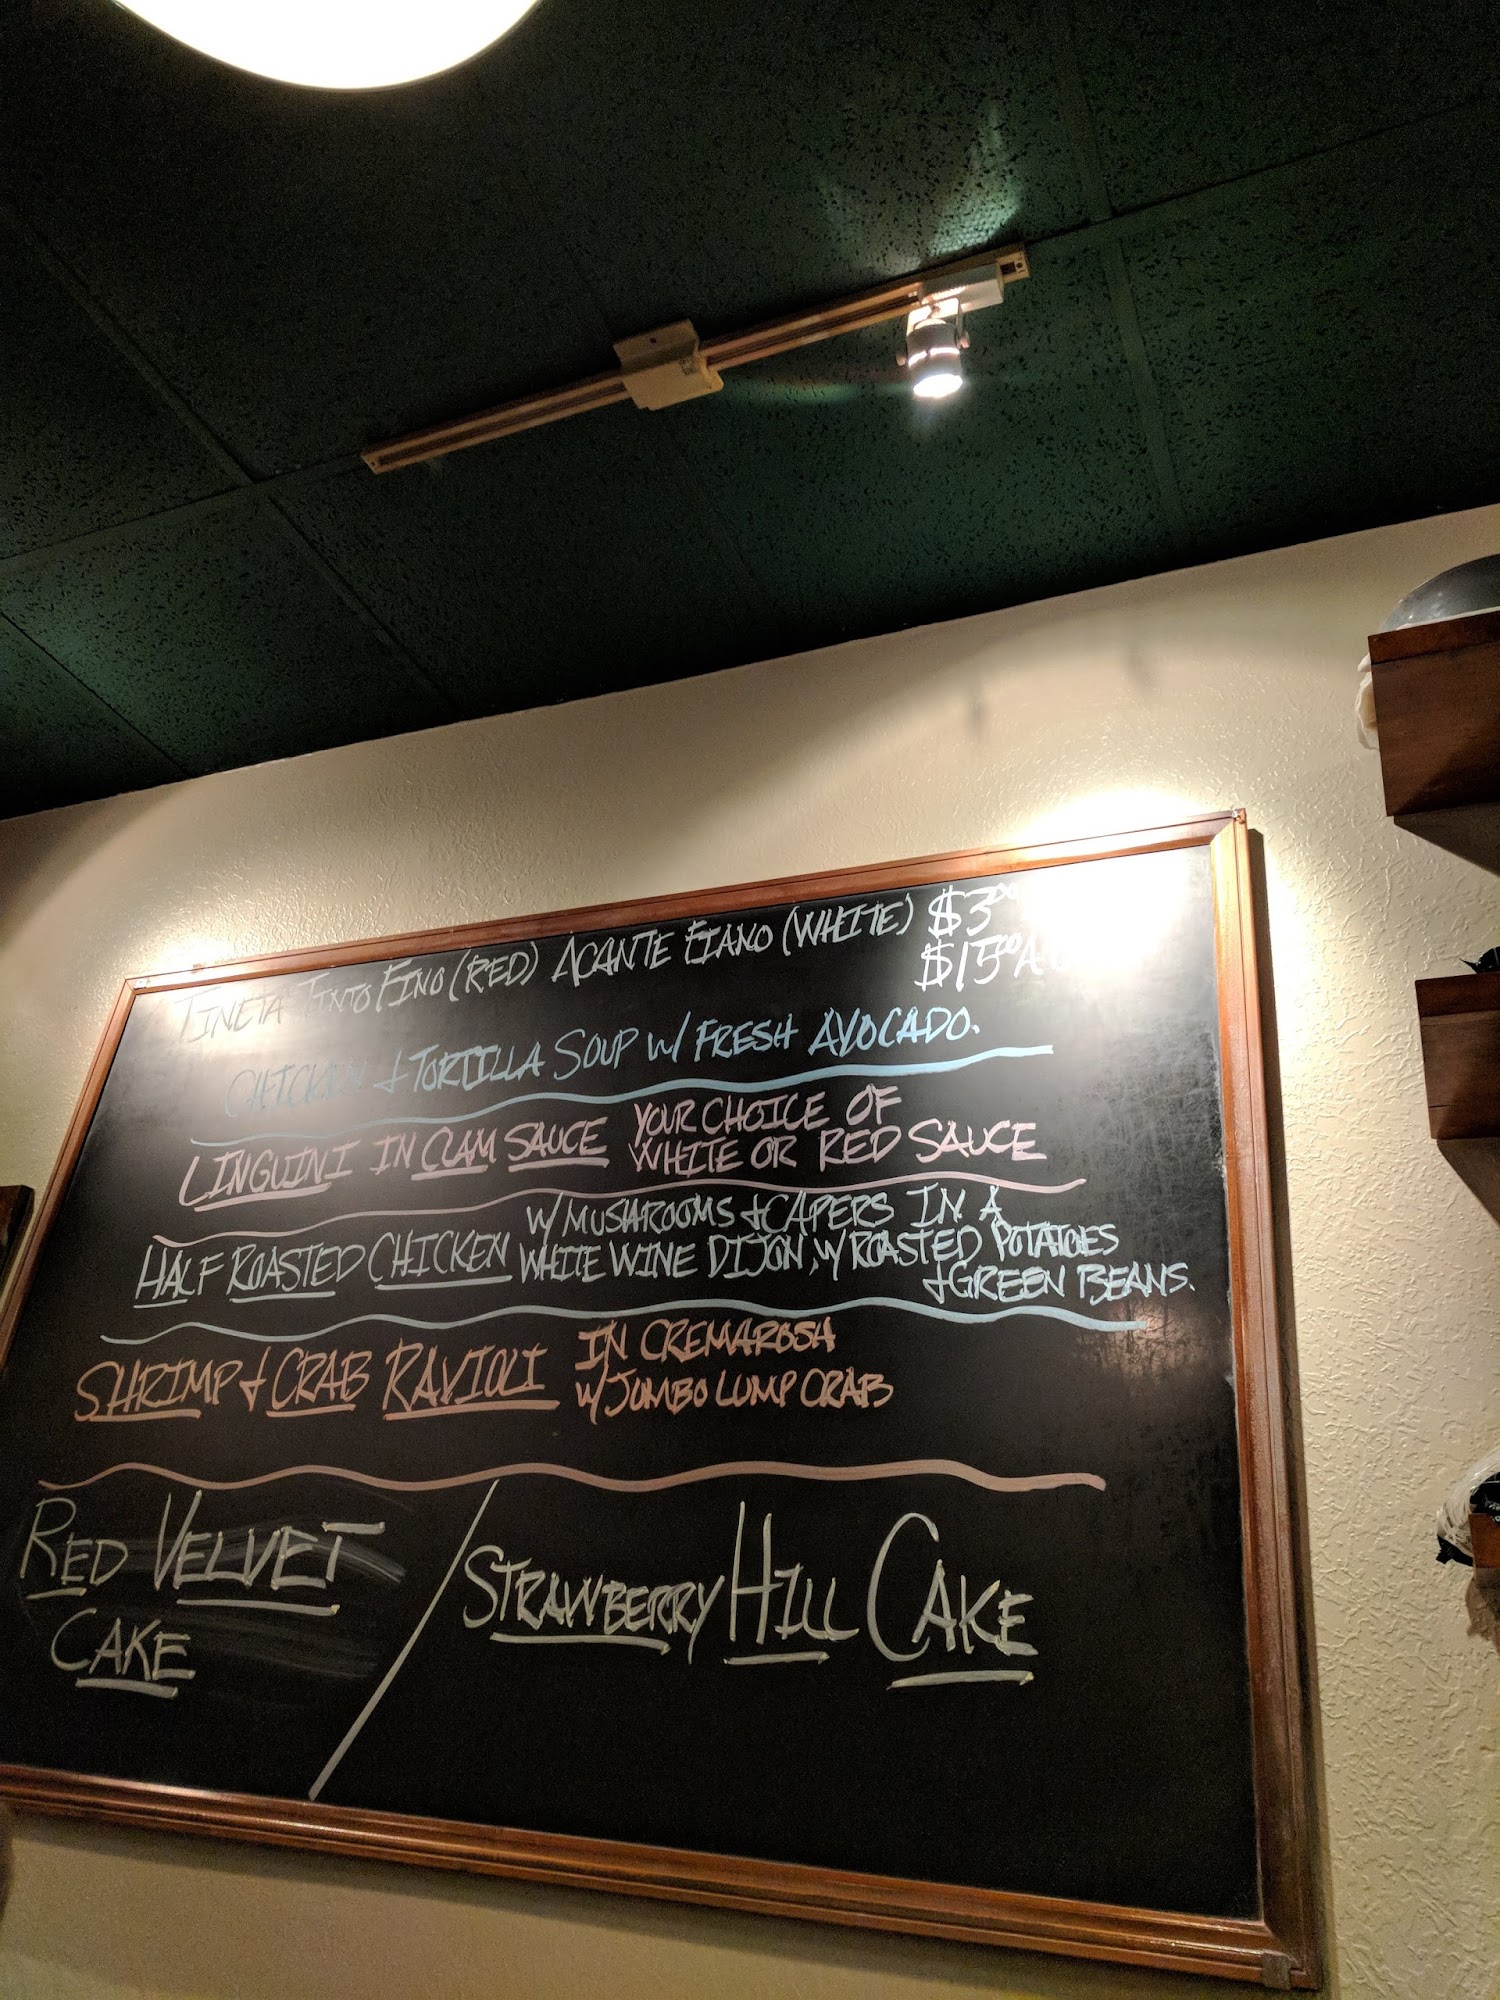 TINETA TINTO FINO (RED) ACANTE FIANO (WHITE) $3.00
$15.00 A
CHICKEN & TORTILLA SOUP W/ FRESH AVOCADO.
LINGUINI IN CLAM SAUCE YOUR CHOICE OF
WHITE OR RED SAUCE
W/ MUSHROOMS & CAPERS IN A
HALF ROASTED CHICKEN WHITE WINE DIJON, W/ ROASTED POTATOES
& GREEN BEANS.
SHRIMP & CRAB RAVIOLI IN CREMAROSA
W/ JUMBO LUMP CRAB
RED VELVET
CAKE
STRAWBERRY HILL CAKE